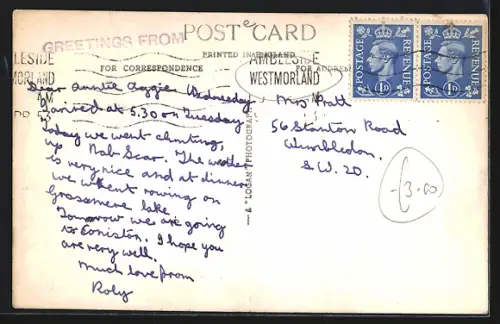 GREETINGS FROM
POST CARD
PRINTED IN ENGLAND
FOR CORRESPONDENCE
FOR ADDRESS
AMBLESIDE
WESTMORLAND
AM
POSTAGE REVENUE
1D
POSTAGE REVENUE
1D
Dear Auntie Aggie Wednesday
I arrived at 5.30 on Tuesday
Today we went climbing,
up Nab Scar. The weather
is very nice and at dinner
we went rowing on
Grassmere lake
Tomorrow we are going
to Coniston. I hope you
are very well.
Much love from
Roly
A "LOGAN" PHOTOGRAPH
Mrs Pratt
56 Stanton Road
Wimbledon.
S.W. 20.
3-00